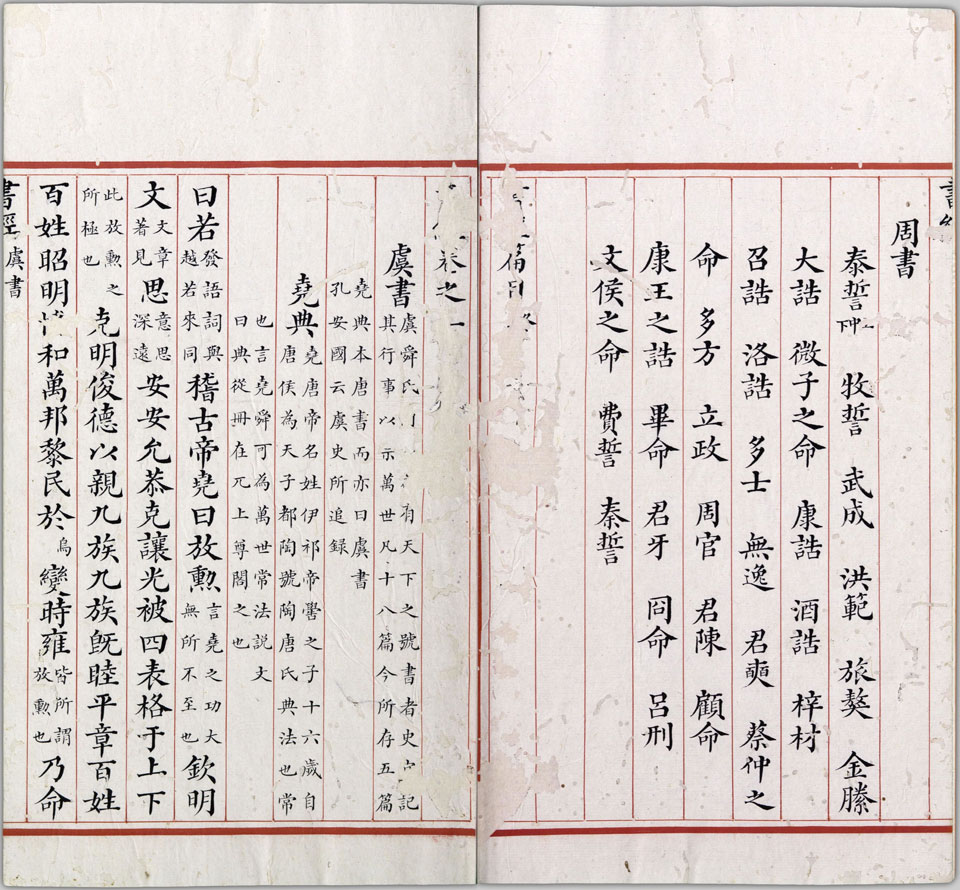 周書
泰誓 牧誓 武成 洪範 旅獒 金縢
大誥 微子之命 康誥 酒誥 梓材
召誥 洛誥 多士 無逸 君奭 蔡仲之
命 多方 立政 周官 君陳 顧命
康王之誥 畢命 君牙 冏命 呂刑
文侯之命 費誓 秦誓
篇目
卷之一
虞書 虞舜氏有天下之號書者史官記其行事以示萬世凡十八篇今所存五篇
堯典本唐書而亦曰虞書孔安國云虞史所追錄
堯典 堯唐帝名姓伊祁帝嚳之子十六歲自唐侯為天子都陶號陶唐氏典法也常
也言堯舜可為萬世常法説文曰典從冊在兀上尊閣之也
曰若發語詞與越若來同稽古帝堯曰放勲言堯之功大無所不至也欽明
文文章著見思意思深遠安安允恭克讓光被四表格于上下
此放勲之所極也克明俊德以親九族九族旣睦平章百姓
百姓昭明和萬邦黎民於烏變時雍皆所謂放勲也乃命
書經 虞書